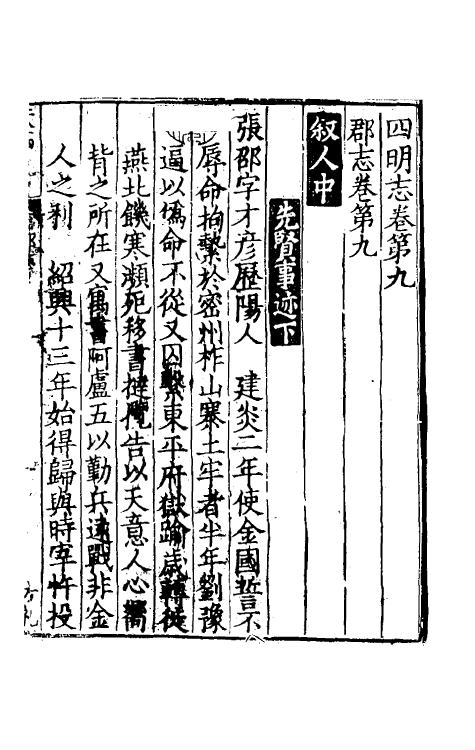 四明志卷第九
郡志卷第九
叙人中
先賢事迹下
張邵字才彦歷陽人 建炎二年使金國誓不
辱命拘繫於密州柞山寨土牢者半年劉豫
逼以僞命不從又囚繫東平府獄踰歲轉徙
燕北饑寒瀕死移書撻攬告以天意人心嚮
背之所在又寓書阿盧五以勤兵遠戰非金
人之利 紹興十三年始得歸與時宰忤投
方礼